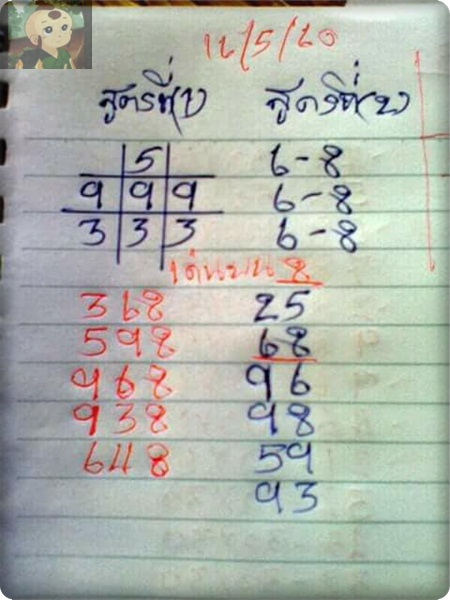 16/5/60
สูตรที่(1) สูตรที่(2)
5 6-8
9 9 9 6-8
3 3 3 6-8
เด่นบน 8
368 25
598 68
968 96
938 98
648 59
93